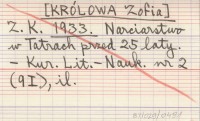 [KRÓLOWA Zofia]
Z. K. 1933. Narciarstwo
w Tatrach przed 25 laty.
- Kur. Lit.-Nauk. nr 2
(9I), il.